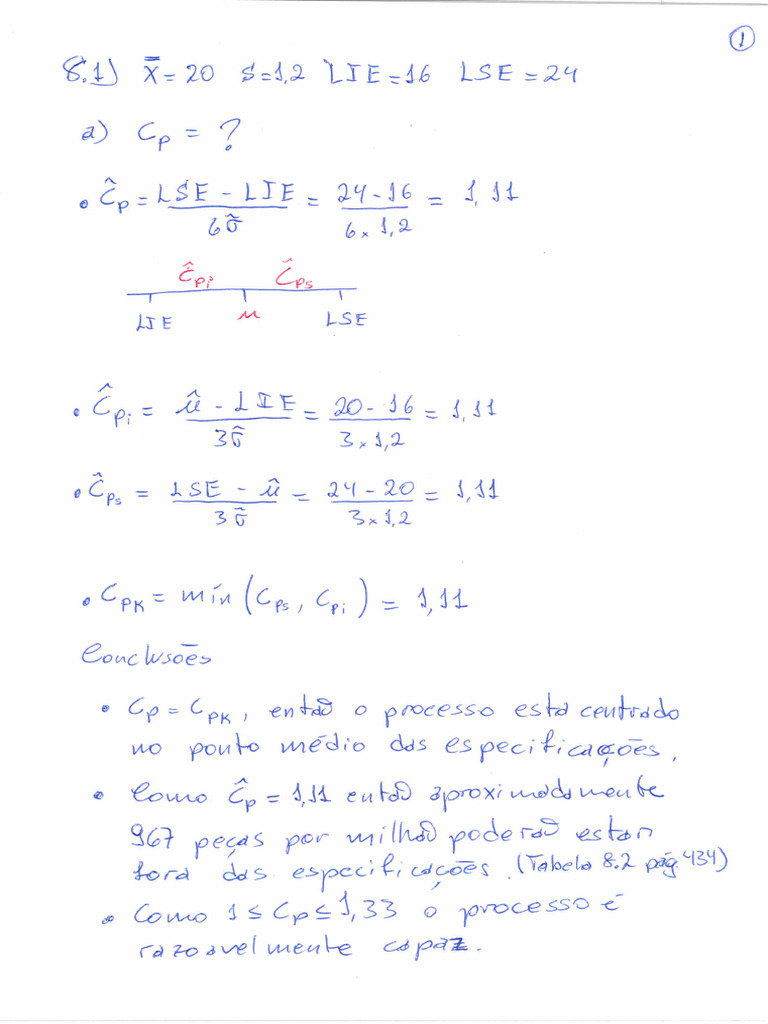 ①
8.1) X̿ = 20 S = 1,2 LIE = 16 LSE = 24
a) Cp = ?
• Ĉp = (LSE - LIE)/(6σ̂) = (24 - 16)/(6 × 1,2) = 1,11
Ĉpi Ĉps
LIE μ LSE
• Ĉpi = (μ̂ - LIE)/(3σ̂) = (20 - 16)/(3 × 1,2) = 1,11
• Ĉps = (LSE - μ̂)/(3σ̂) = (24 - 20)/(3 × 1,2) = 1,11
• CPK = mín (Cps, Cpi) = 1,11
Conclusões
• Cp = CPK, então o processo esta centrado
no ponto médio das especificações.
• Como Ĉp = 1,11 então aproximadamente
967 peças por milhão poderão estar
fora das especificações. (Tabela 8.2 pág. 434)
• Como 1 ≤ Cp ≤ 1,33 o processo é
razoavelmente capaz.